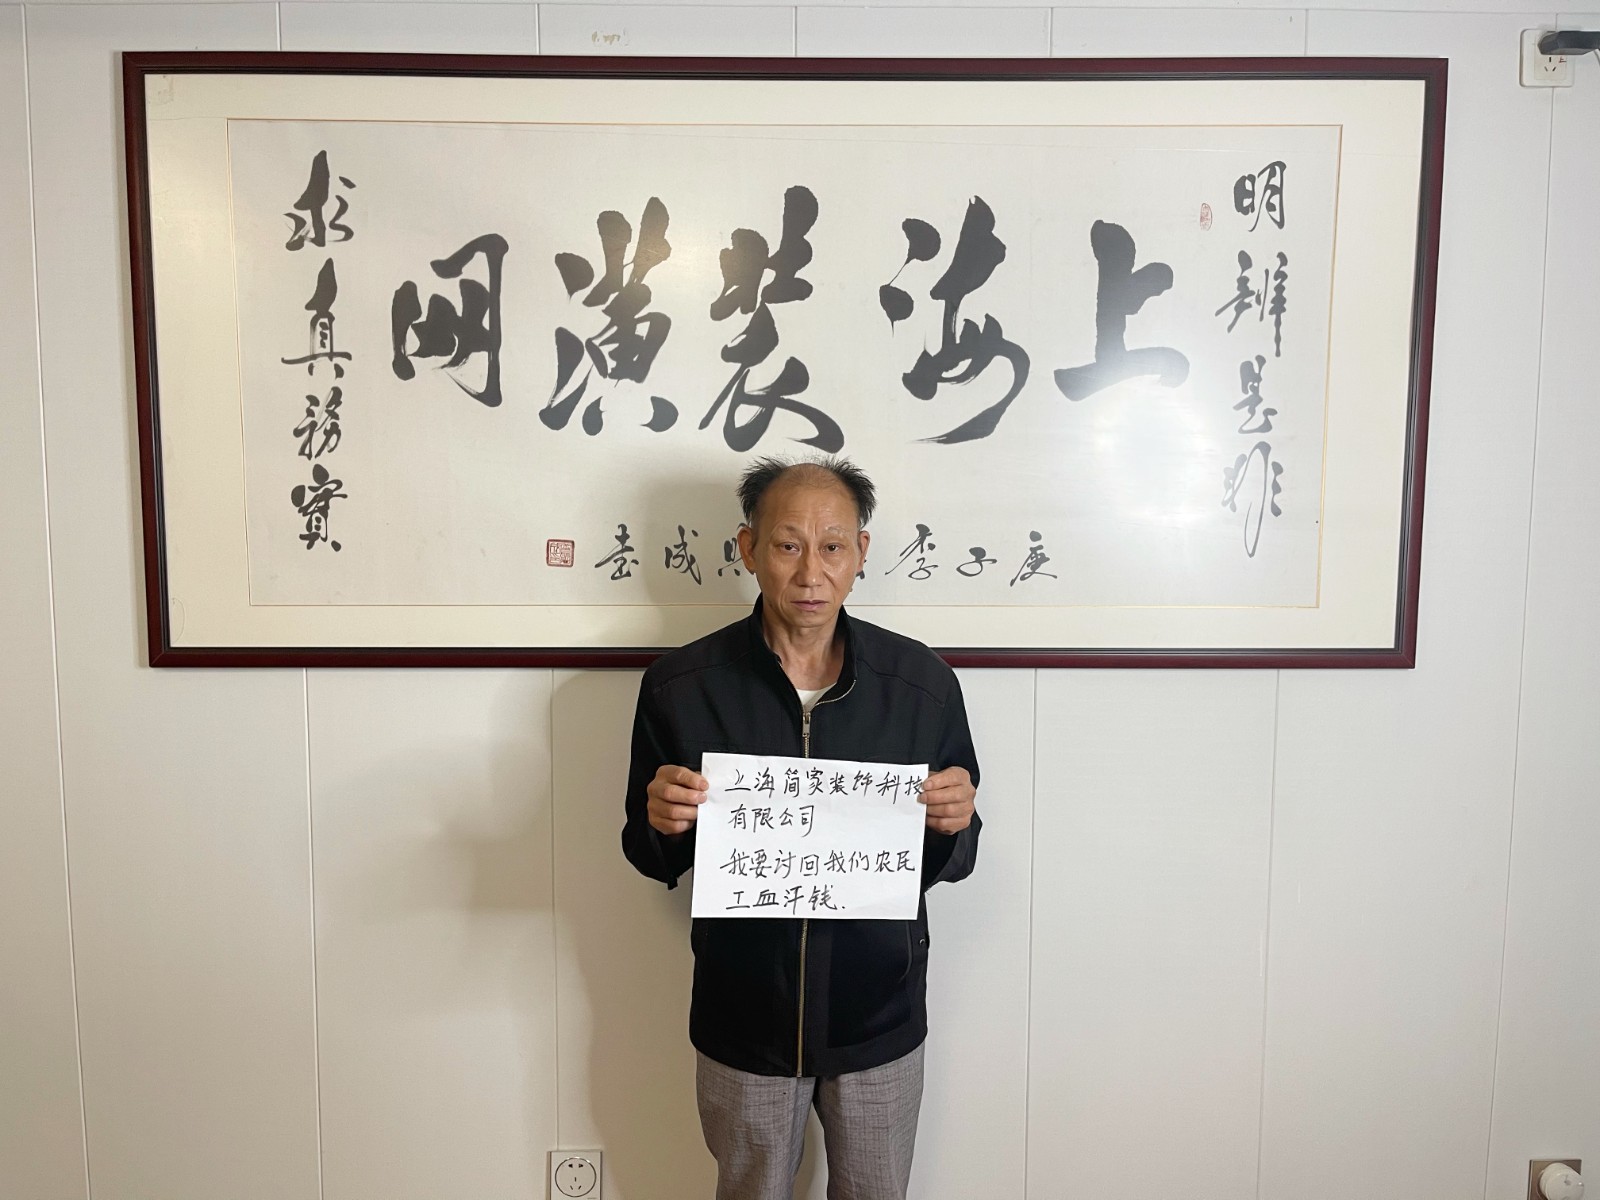 明辨是非
上海装潢网
求真務實
庚子季
成臺
上海简家装饰科技
有限公司
我要讨回我们农民
工血汗钱.